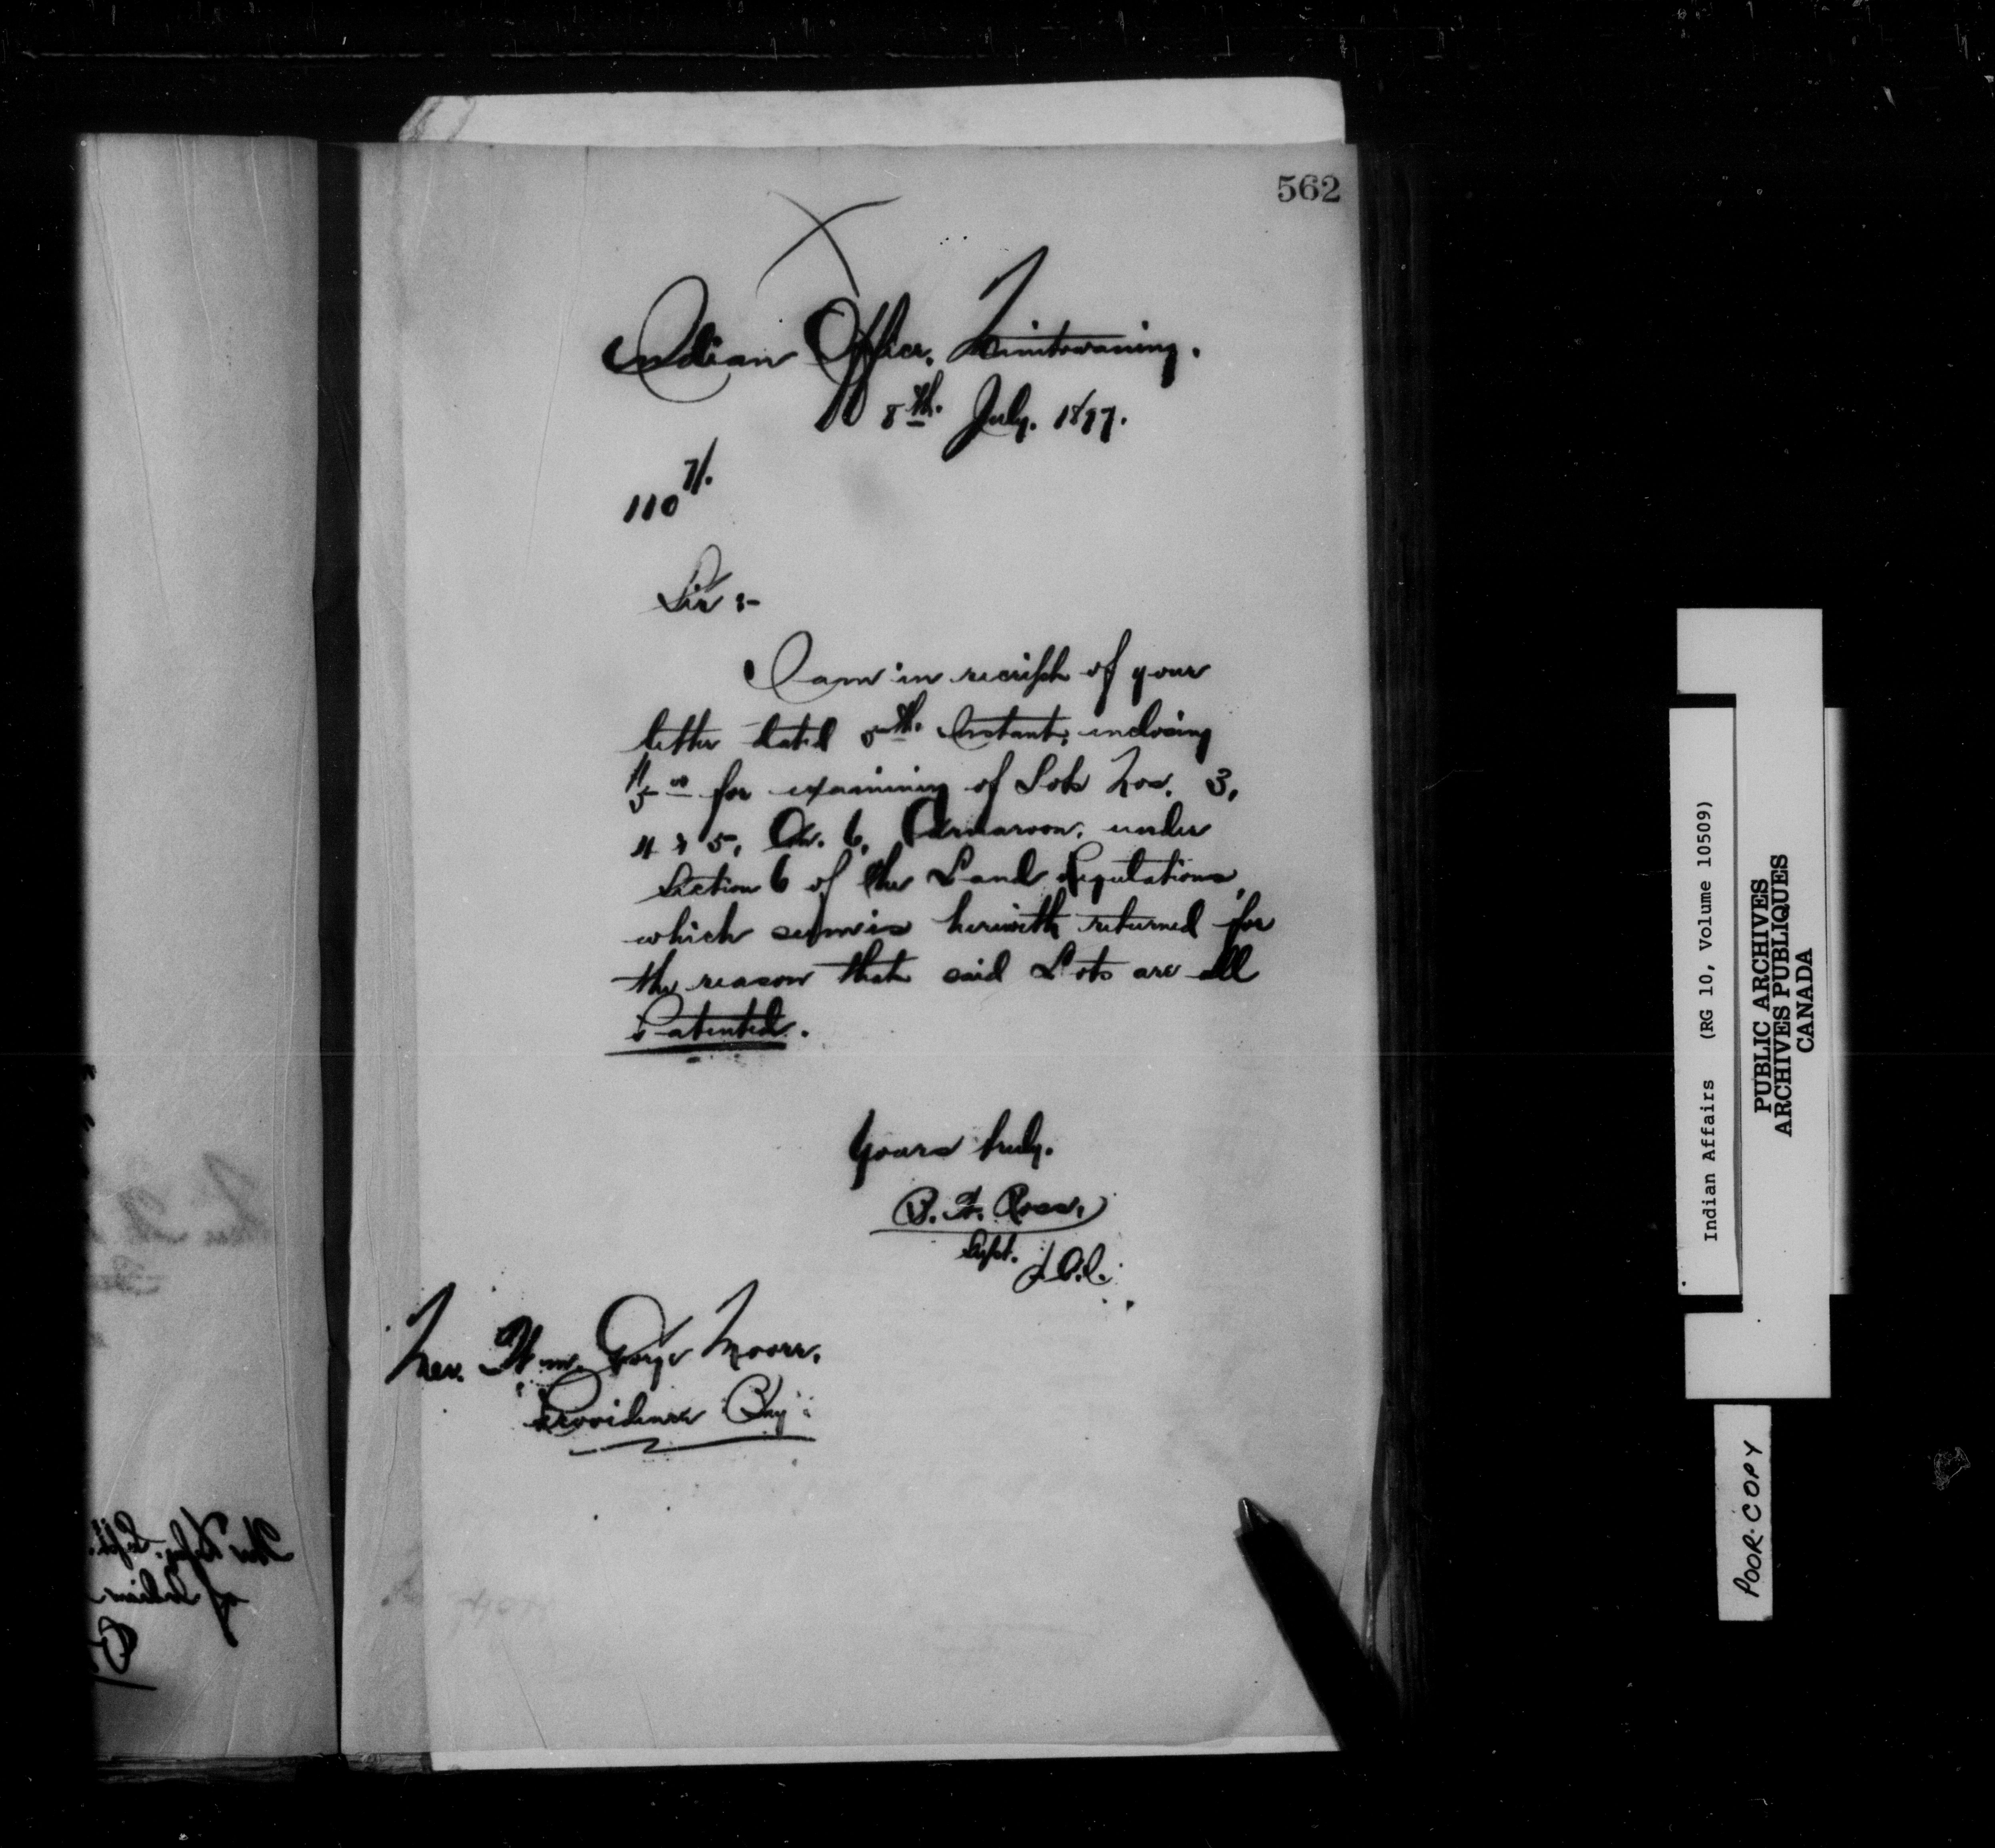 562
Indian Office, Manitowaning.
8th. July. 1897.
110
Sir :-
I am in receipt of your
letter dated 5th. Instant, inclosing
$5 00 for examining of Lots Nos. 3,
4 & 5, Con. 6, Carnarvon, under
Section 6 of the Land Regulations,
which sum is herewith returned for
the reason that said Lots are all
Patented.
Yours truly.
B. W. Ross,
Supt.
Wm. George Moore.
Providence Bay.
The
of Indian
Indian Affairs (RG 10, Volume 10509)
PUBLIC ARCHIVES
ARCHIVES PUBLIQUES
CANADA
POOR COPY